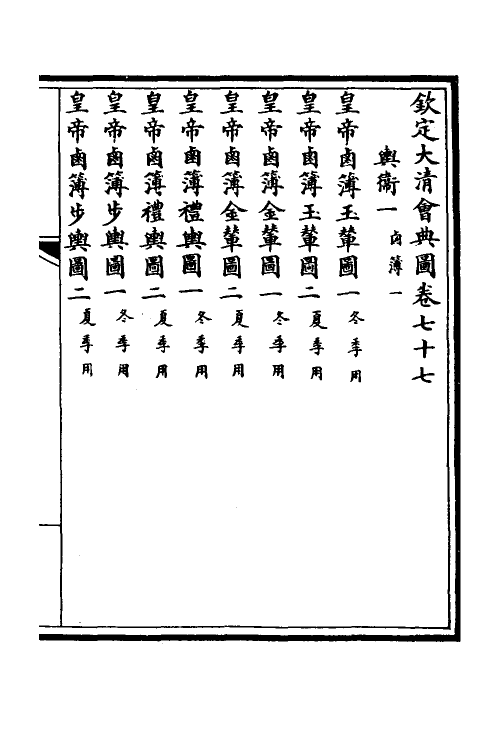 欽定大清會典圖卷七十七
輿衞一 鹵簿一
皇帝鹵簿玉輦圖一 冬季用
皇帝鹵簿玉輦圖二 夏季用
皇帝鹵簿金輦圖一 冬季用
皇帝鹵簿金輦圖二 夏季用
皇帝鹵簿禮輿圖一 冬季用
皇帝鹵簿禮輿圖二 夏季用
皇帝鹵簿步輿圖一 冬季用
皇帝鹵簿步輿圖二 夏季用